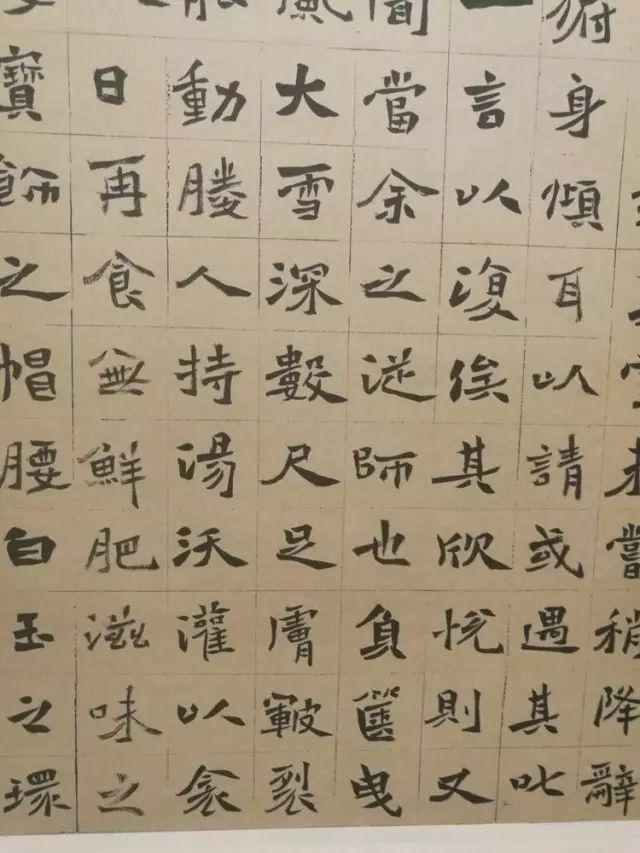 未嘗稍降辭
身傾耳以請或遇其叱
一言以復俟其欣悅則又
聞當余之從師也負篋曳
風大雪深數尺足膚皸裂
能動媵人持湯沃灌以衾
日再食無鮮肥滋味之
寶飾之帽腰白玉之環